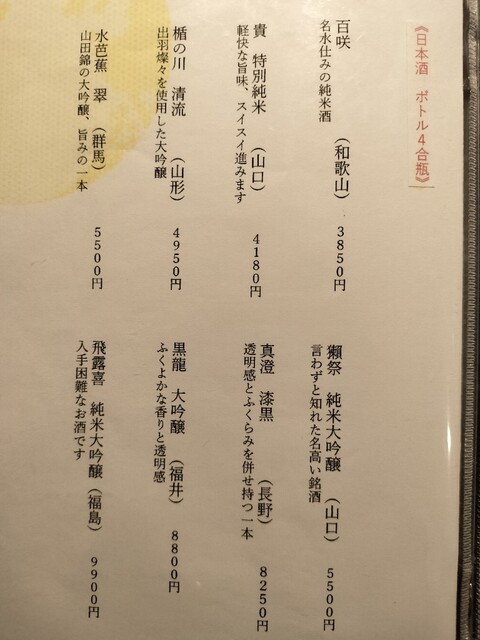 《日本酒 ボトル4合瓶》
百咲 (和歌山) 3850円
名水仕みの純米酒
貴 特別純米 (山口) 4180円
軽快な旨味、スイスイ進みます
楯の川 清流 (山形) 4950円
出羽燦々を使用した大吟醸
水芭蕉 翠 (群馬) 5500円
山田錦の大吟醸、旨みの一本
獺祭 純米大吟醸 (山口) 5500円
言わずと知れた名高い銘酒
真澄 漆黒 (長野) 8250円
透明感とふくらみを併せ持つ一本
黒龍 大吟醸 (福井) 8800円
ふくよかな香りと透明感
飛露喜 純米大吟醸 (福島) 9900円
入手困難なお酒です